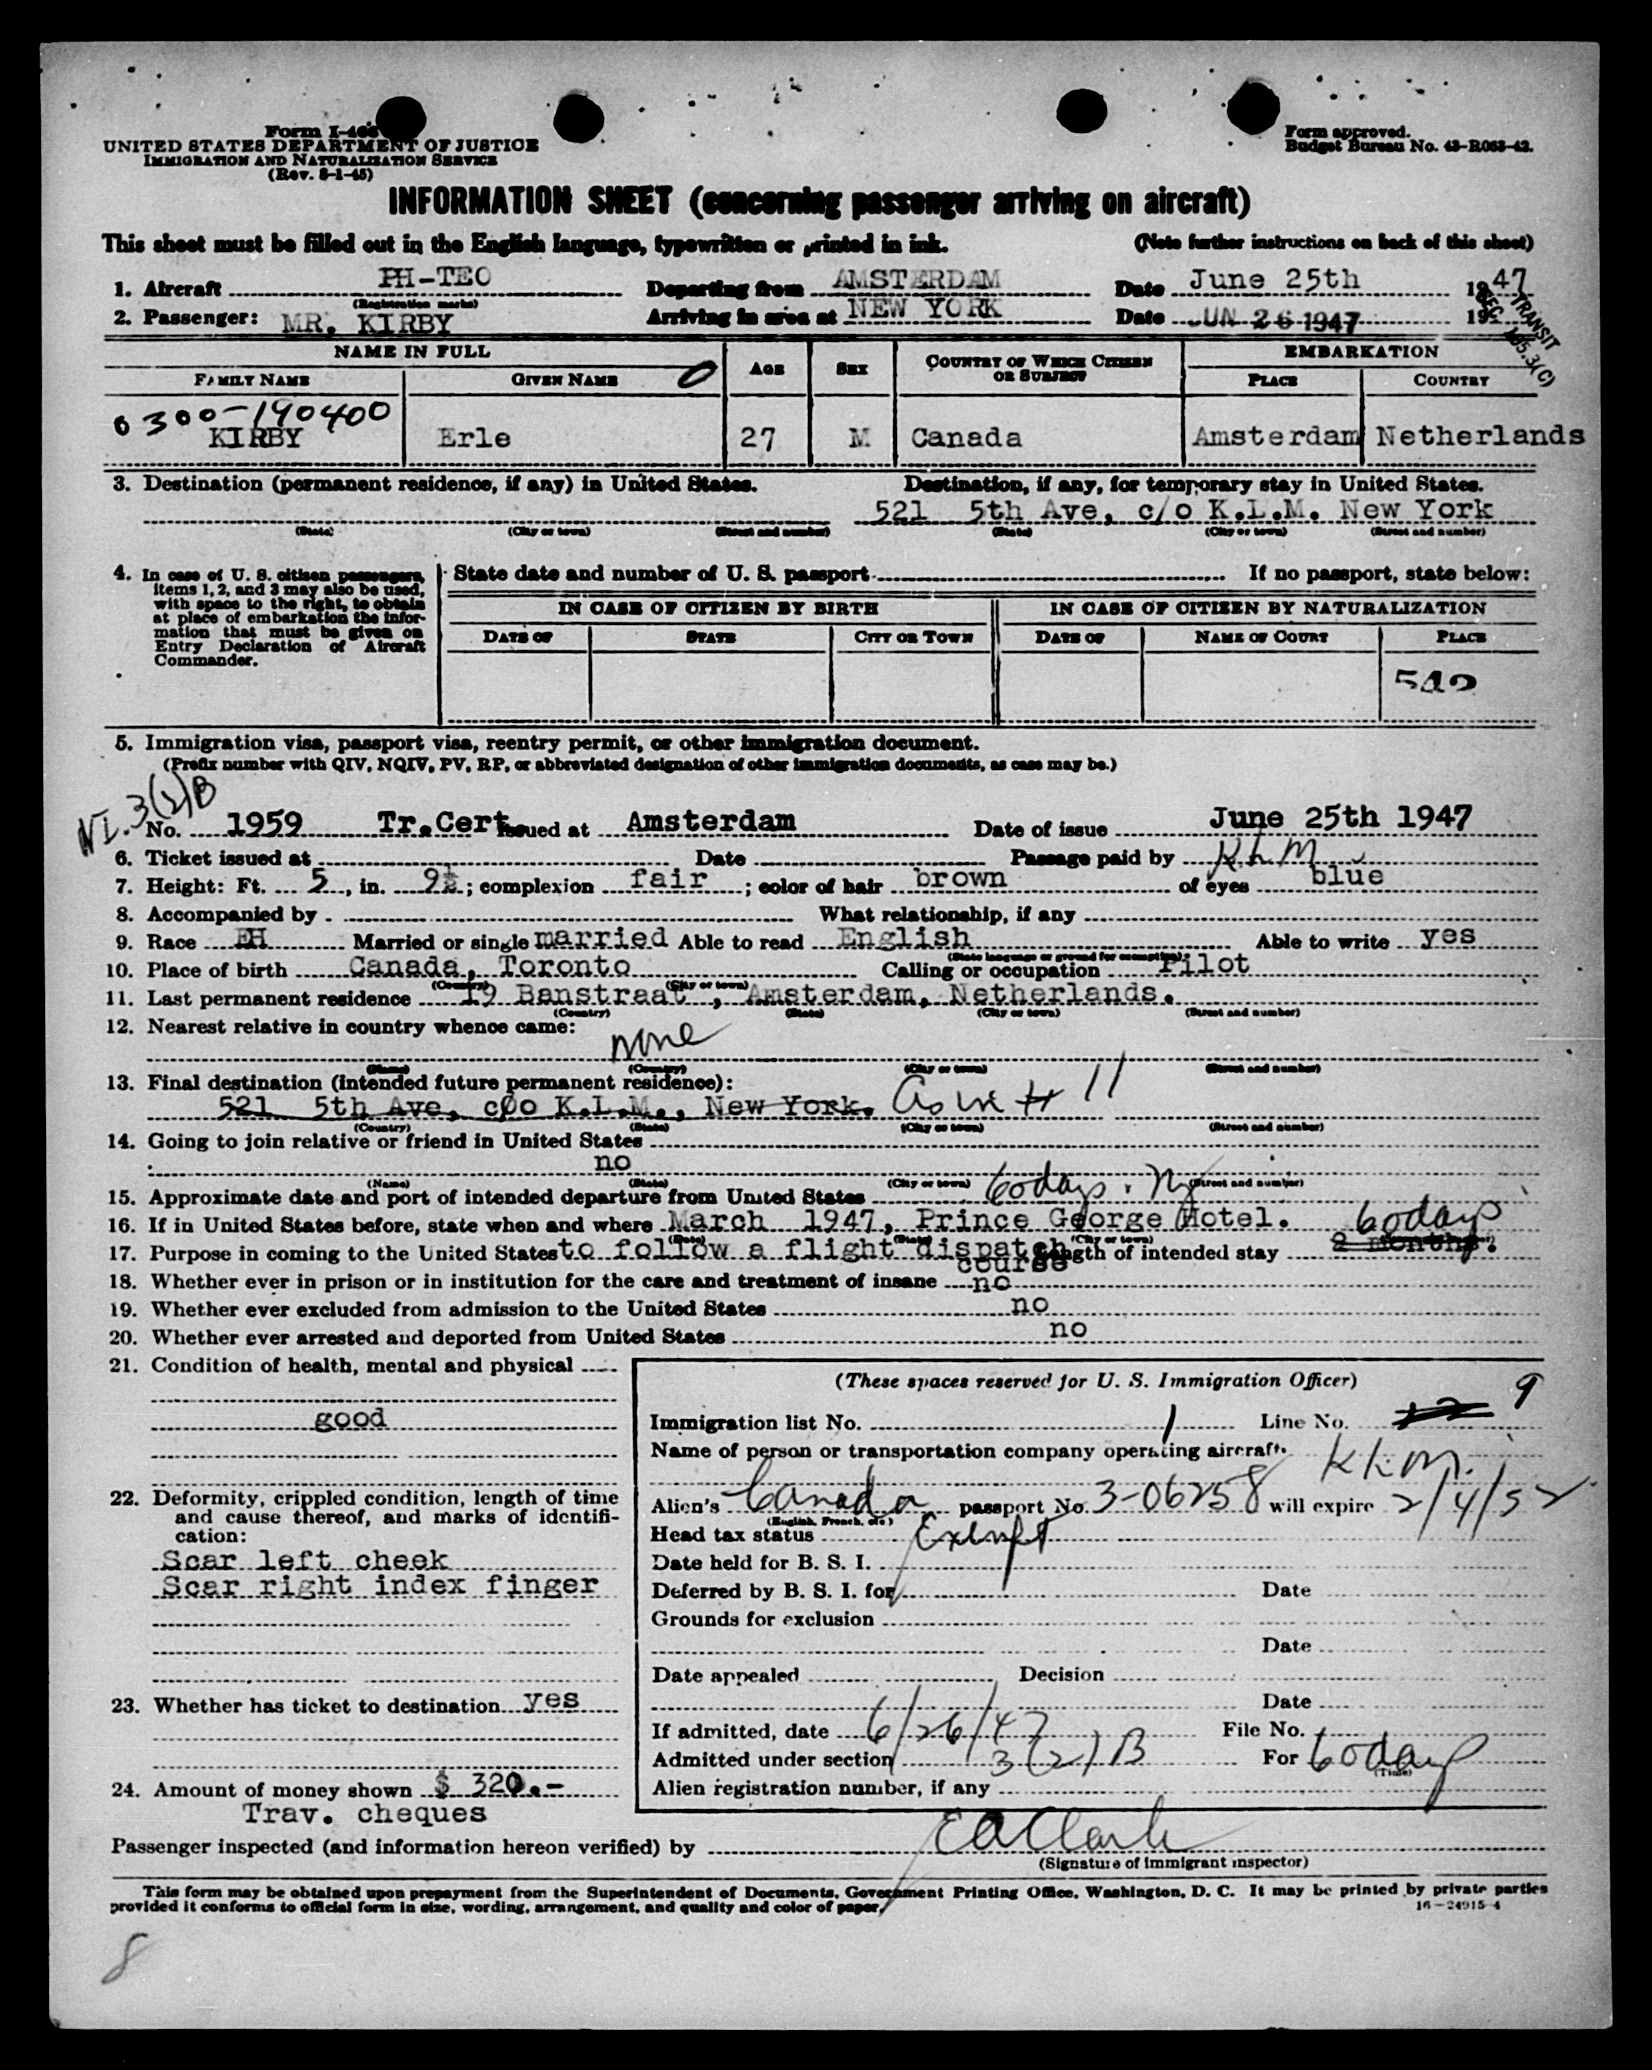 Form I-466
UNITED STATES DEPARTMENT OF JUSTICE
IMMIGRATION AND NATURALIZATION SERVICE
(Rev. 8-1-45)
Form approved.
Budget Bureau No. 43-R063-42.
INFORMATION SHEET (concerning passenger arriving on aircraft)
This sheet must be filled out in the English language, typewritten or printed in ink. (Note further instructions on back of this sheet)
1. Aircraft PH-TEO Departing from AMSTERDAM Date June 25th 1947
(Registration marks)
2. Passenger: MR. KIRBY Arriving in area at NEW YORK Date JUN 26 1947 19
TRANSIT
SEC. 105.3(C)
NAME IN FULL AGE SEX COUNTRY OF WHICH CITIZEN OR SUBJECT EMBARKATION
FAMILY NAME GIVEN NAME 0 PLACE COUNTRY
0300-190400
KIRBY Erle 27 M Canada Amsterdam Netherlands
3. Destination (permanent residence, if any) in United States. Destination, if any, for temporary stay in United States.
521 5th Ave, c/o K.L.M. New York
(State) (City or town) (Street and number) (State) (City or town) (Street and number)
4. In case of U. S. citizen passengers, items 1, 2, and 3 may also be used, with space to the right, to obtain at place of embarkation the information that must be given on Entry Declaration of Aircraft Commander.
State date and number of U. S. passport If no passport, state below:
IN CASE OF CITIZEN BY BIRTH IN CASE OF CITIZEN BY NATURALIZATION
DATE OF STATE CITY OR TOWN DATE OF NAME OF COURT PLACE
542
5. Immigration visa, passport visa, reentry permit, or other immigration document.
(Prefix number with QIV, NQIV, PV, RP, or abbreviated designation of other immigration documents, as case may be.)
NI. 3(2)B
No. 1959 Tr.Cert. Issued at Amsterdam Date of issue June 25th 1947
6. Ticket issued at Date Passage paid by KLM
7. Height: Ft. 5, in. 9½; complexion fair; color of hair brown of eyes blue
8. Accompanied by What relationship, if any
9. Race EH Married or single married Able to read English Able to write yes
(State language or ground for exemption)
10. Place of birth Canada, Toronto Calling or occupation Pilot
(Country) (City or town)
11. Last permanent residence 19 Banstraat, Amsterdam, Netherlands.
(Country) (State) (City or town) (Street and number)
12. Nearest relative in country whence came:
none
(Name) (Country) (City or town) (Street and number)
13. Final destination (intended future permanent residence):
521 5th Ave, c/o K.L.M., New York. as in # 11
(Country) (State) (City or town) (Street and number)
14. Going to join relative or friend in United States
no
(Name) (State) (City or town) (Street and number)
15. Approximate date and port of intended departure from United States 60 days. NY
16. If in United States before, state when and where March 1947, Prince George Hotel.
(Date) (State) (City or town)
60 days
17. Purpose in coming to the United States to follow a flight dispatch course Length of intended stay 2 months.
18. Whether ever in prison or in institution for the care and treatment of insane no
19. Whether ever excluded from admission to the United States no
20. Whether ever arrested and deported from United States no
21. Condition of health, mental and physical
good
22. Deformity, crippled condition, length of time and cause thereof, and marks of identification:
Scar left cheek
Scar right index finger
23. Whether has ticket to destination yes
24. Amount of money shown $ 320.-
Trav. cheques
(These spaces reserved for U. S. Immigration Officer)
Immigration list No. 1 Line No. 9
Name of person or transportation company operating aircraft
KLM.
Alien's Canada passport No. 3-06258 will expire 2/4/52
(English, French, etc)
Head tax status Exempt
Date held for B. S. I.
Deferred by B. S. I. for Date
Grounds for exclusion
Date
Date appealed Decision
Date
If admitted, date 6/26/47 File No.
Admitted under section 3(2)B For 60 days
(Time)
Alien registration number, if any
Passenger inspected (and information hereon verified) by EAClark
(Signature of immigrant inspector)
This form may be obtained upon prepayment from the Superintendent of Documents, Government Printing Office, Washington, D. C. It may be printed by private parties
provided it conforms to official form in size, wording, arrangement, and quality and color of paper.
16-24915-4
8